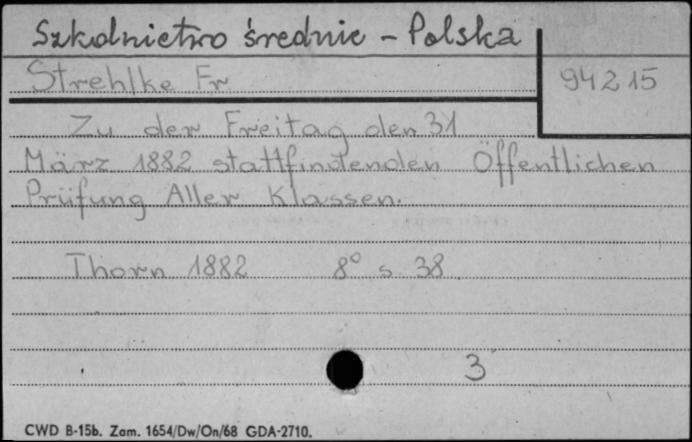 Szkolnictwo średnie - Polska
Strehlke Fr
94215
Zu der Freitag den 31
März 1882 stattfindenden Öffentlichen
Prüfung Aller Klassen.
Thorn 1882 8° s 38
3
CWD B-15b. Zam. 1654/Dw/On/68 GDA-2710.